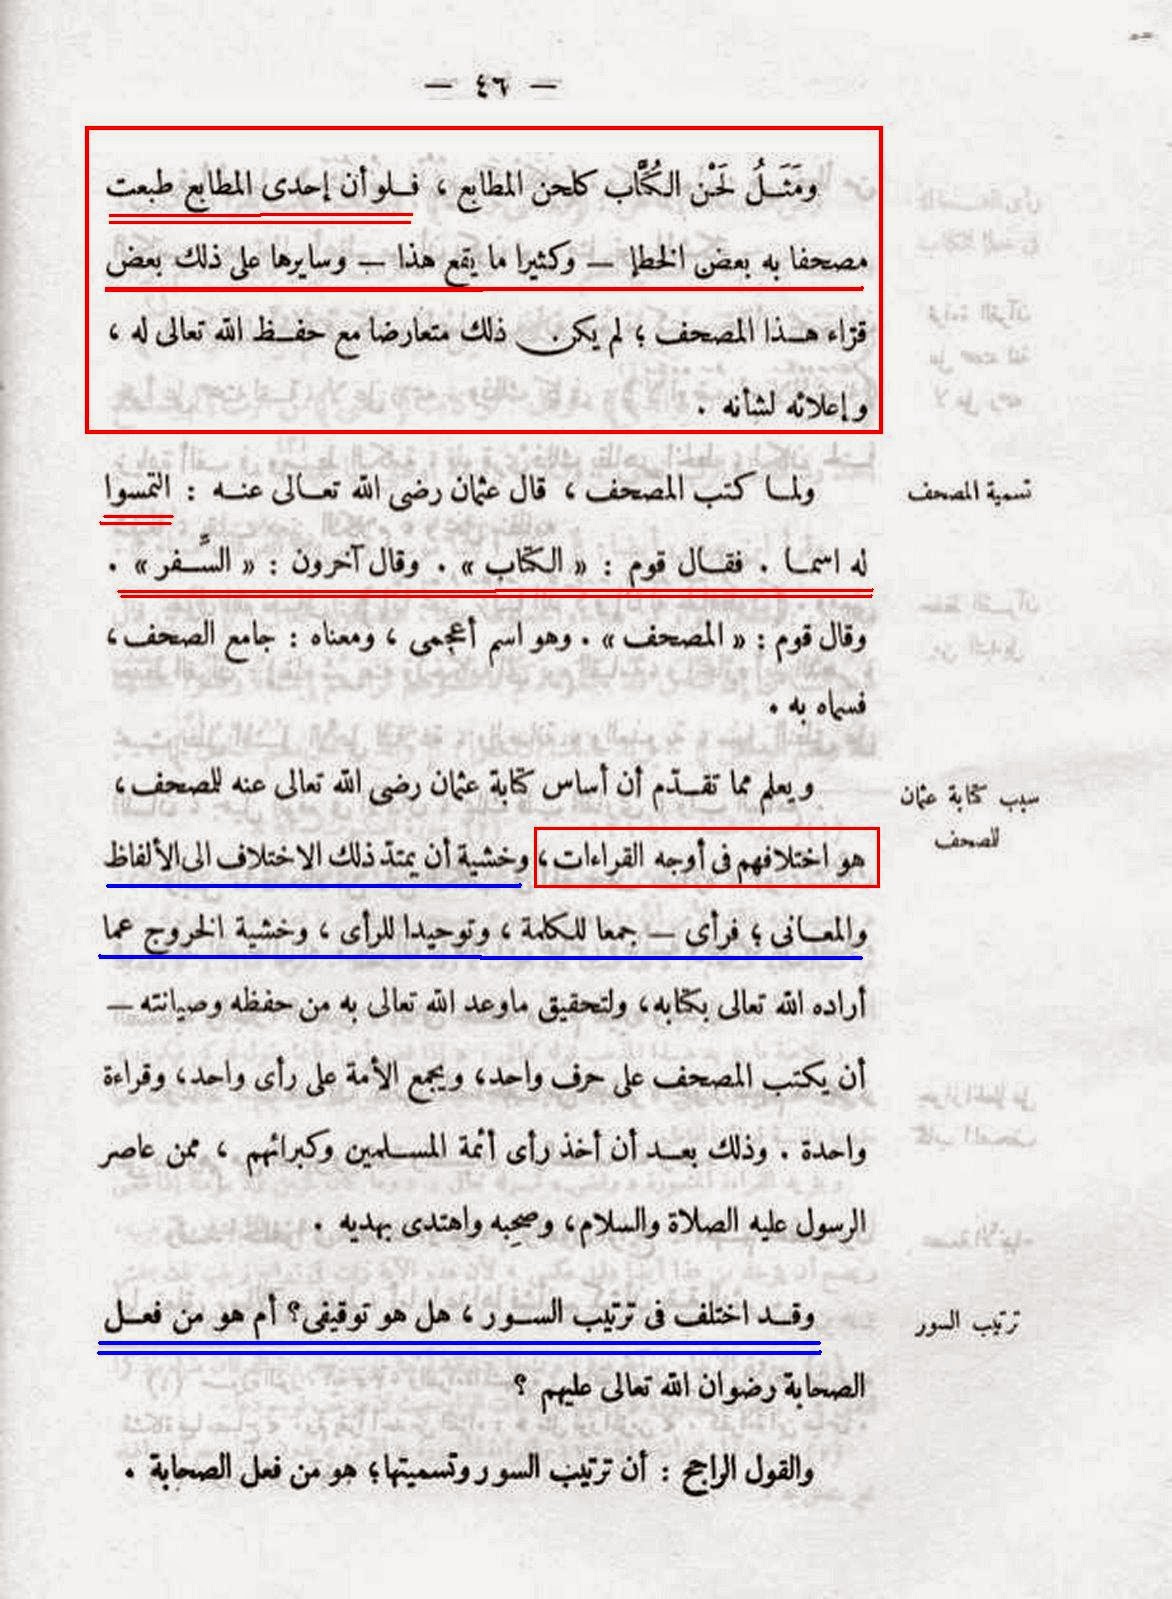 — ٤٦ —
ومَثَلُ لَحْن الكُتَّاب كلحن المطابع ، فلو أن إحدى المطابع طبعت
مصحفا به بعض الخطإ — وكثيرا ما يقع هذا — وسايرها على ذلك بعض
قرّاء هذا المصحف ؛ لم يكن ذلك متعارضا مع حفظ الله تعالى له ،
وإعلائه لشأنه .
تسمية المصحف
ولما كتب المصحف ، قال عثمان رضى الله تعالى عنه : التمسوا
له اسما . فقال قوم : « الكتاب » . وقال آخرون : « السَّفر » .
وقال قوم : « المصحف » . وهو اسم أعجمى ، ومعناه : جامع الصحف ،
فسماه به .
سبب كتابة عثمان
للصحف
ويعلم مما تقدّم أن أساس كتابة عثمان رضى الله تعالى عنه للمصحف ،
هو اختلافهم فى أوجه القراءات ، وخشية أن يمتدّ ذلك الاختلاف الى الألفاظ
والمعانى ؛ فرأى — جمعا للكلمة ، وتوحيدا للرأى ، وخشية الخروج عما
أراده الله تعالى بكتابه ، ولتحقيق ماوعد الله تعالى به من حفظه وصيانته —
أن يكتب المصحف على حرف واحد ، ويجمع الأمة على رأى واحد ، وقراءة
واحدة . وذلك بعد أن أخذ رأى أئمة المسلمين وكبرائهم ، ممن عاصر
الرسول عليه الصلاة والسلام ، وصحِبه واهتدى بهديه .
ترتيب السور
وقد اختلف فى ترتيب السور ، هل هو توقيفى ؟ أم هو من فعل
الصحابة رضوان الله تعالى عليهم ؟
والقول الراجح : أن ترتيب السور وتسميتها ؛ هو من فعل الصحابة .